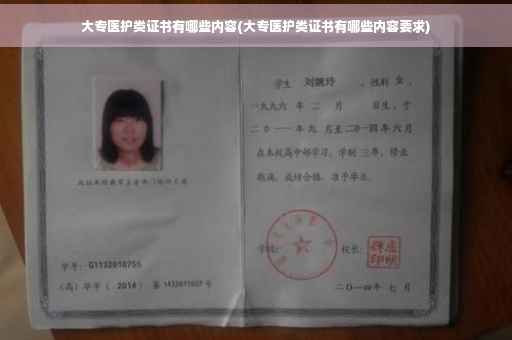 大专医护类证书有哪些内容(大专医护类证书有哪些内容要求)
学生 刘婉玲 ，性别 女 ，
一九九六 年 二 月 日生，于
二〇一一 年 九 月至 二〇一四 年 六 月
在本校高中部学习，学制 三年，修业
期满，成绩合格，准予毕业。
学号： G1132010755
（高）毕字（ 2014 ）第 1432011027 号
学校：
校长：
二〇一四年 七 月